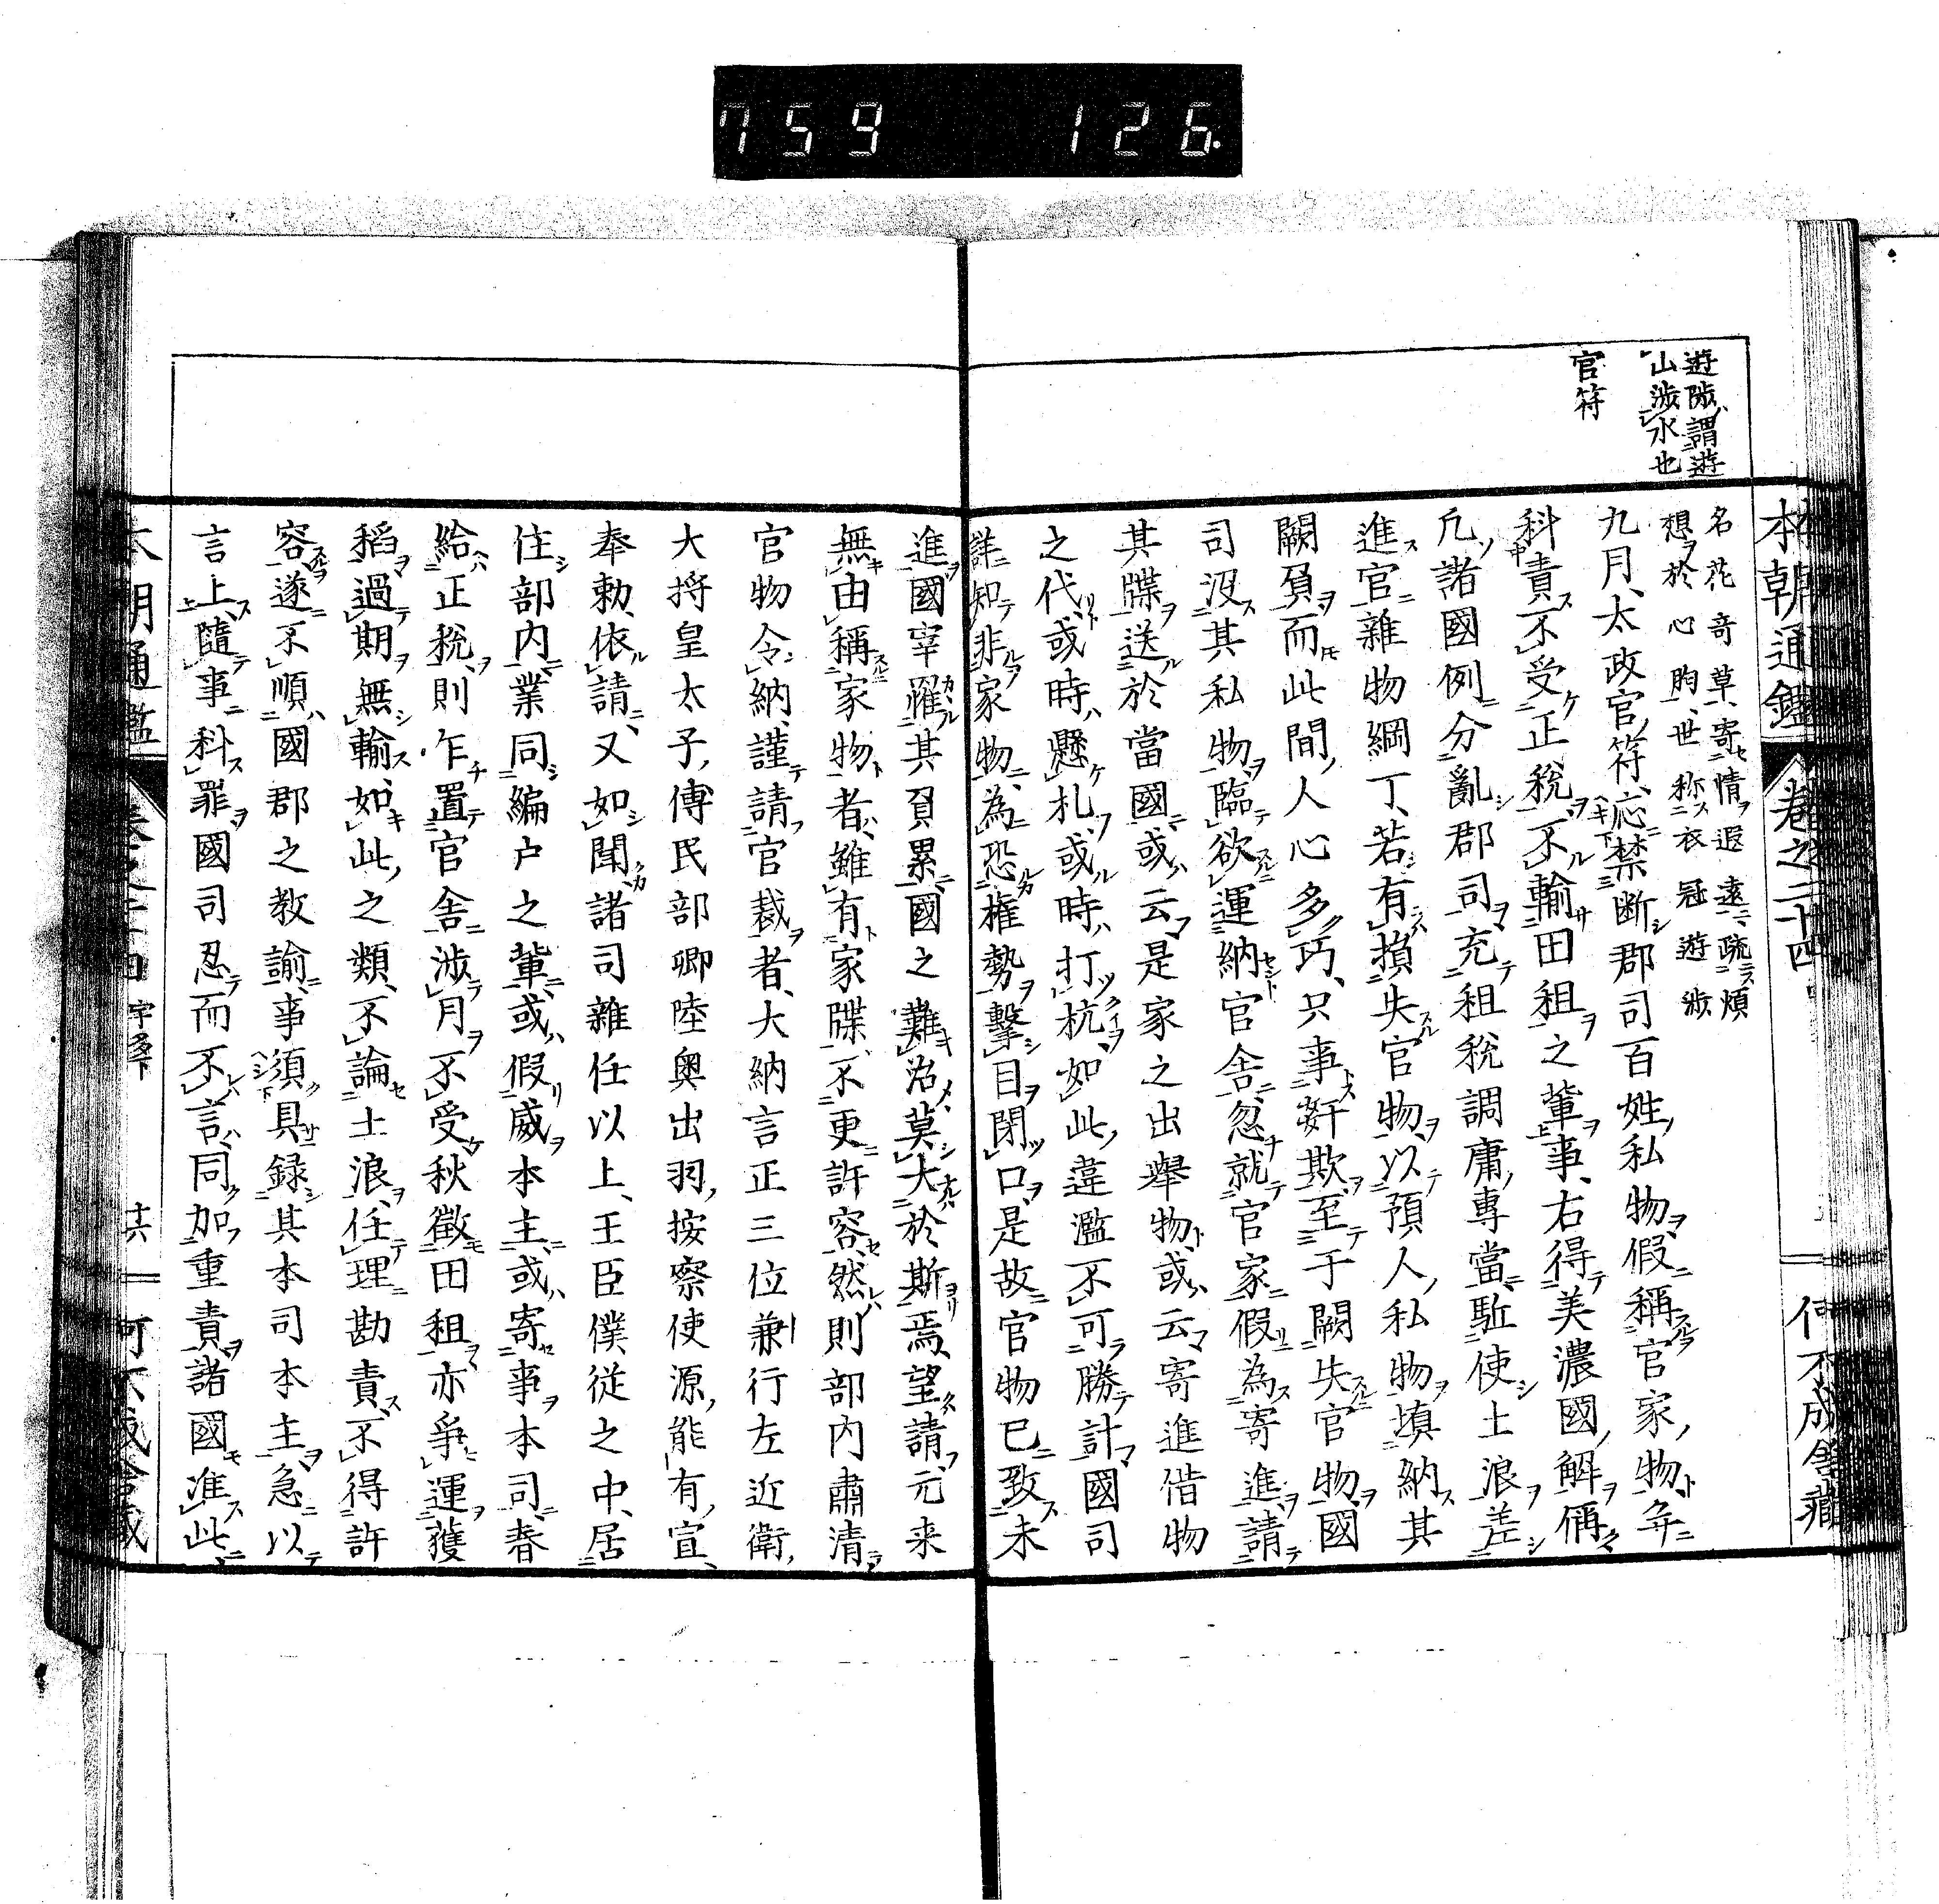 759 126.
本朝通鑑 卷之二十四 何不成舎蔵
遊陟謂遊
山涉水也
官符
名花奇草寄情遐遠疏煩
想於心胸世称衣冠遊涉
九月太政官符応禁断郡司百姓私物假稱官家物并
科責不受正税不輸田租之輩事右得美濃國解偁
凡諸國例分亂郡司充租税調庸專當駈使土浪差
進官雜物綱丁若有損失官物以預人私物填納其
闕負而此間人心多巧只事姧欺至于闕失官物國
司沒其私物臨欲運納官舎忽就官家假為寄進請
其牒送於當國或云是家之出舉物或云寄進借物
之代或時懸札或時打杭如此違濫不可勝計國司
詳知非家物為恐權勢擊目閉口是故官物已致未
進國宰罹其負累國之難治莫大於斯焉望請元来
無由稱家物者雖有家牒不更許容然則部内肅清
官物令納謹請官裁者大納言正三位兼行左近衛
大将皇太子傅民部卿陸奥出羽按察使源能有宣
奉勅依請又如聞諸司雜任以上王臣僕従之中居
住部内業同編户之輩或假威本主或寄事本司春
給正税則乍置官舎涉月不受秋徵田租亦爭運獲
稻過期無輸如此之類不論土浪任理勘責不得許
容遂不順國郡之教諭事須具録其本司本主急以
言上隨事科罪國司忍而不言同加重責諸國准此